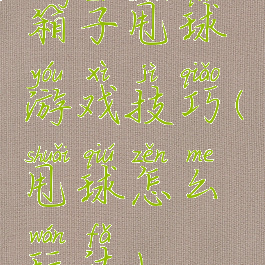 箱子甩球
yóu xì jì qiǎo
游戏技巧(
shuǎi qiú zěn me
甩球怎么
wán fǎ
玩法)